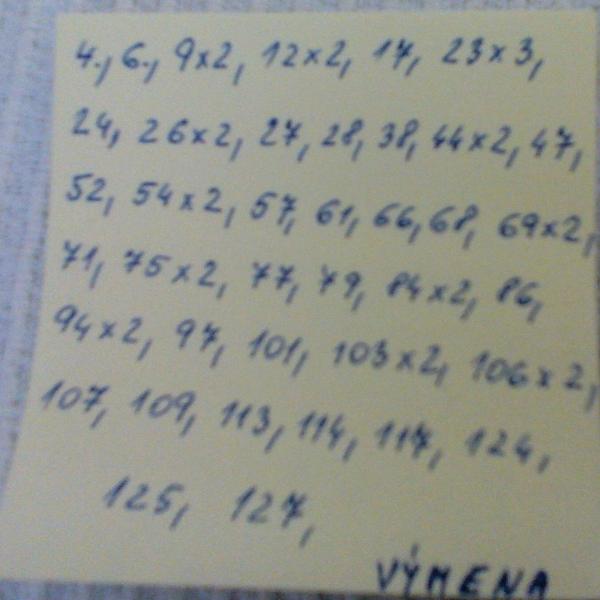 4., 6., 9x2, 12x2, 17, 23x3,
24, 26x2, 27, 28, 38, 44x2, 47,
52, 54x2, 57, 61, 66, 68, 69x2,
71, 75x2, 77, 79, 84x2, 86,
94x2, 97, 101, 103x2, 106x2,
107, 109, 113, 114, 117, 124,
125, 127,
VÝMENA